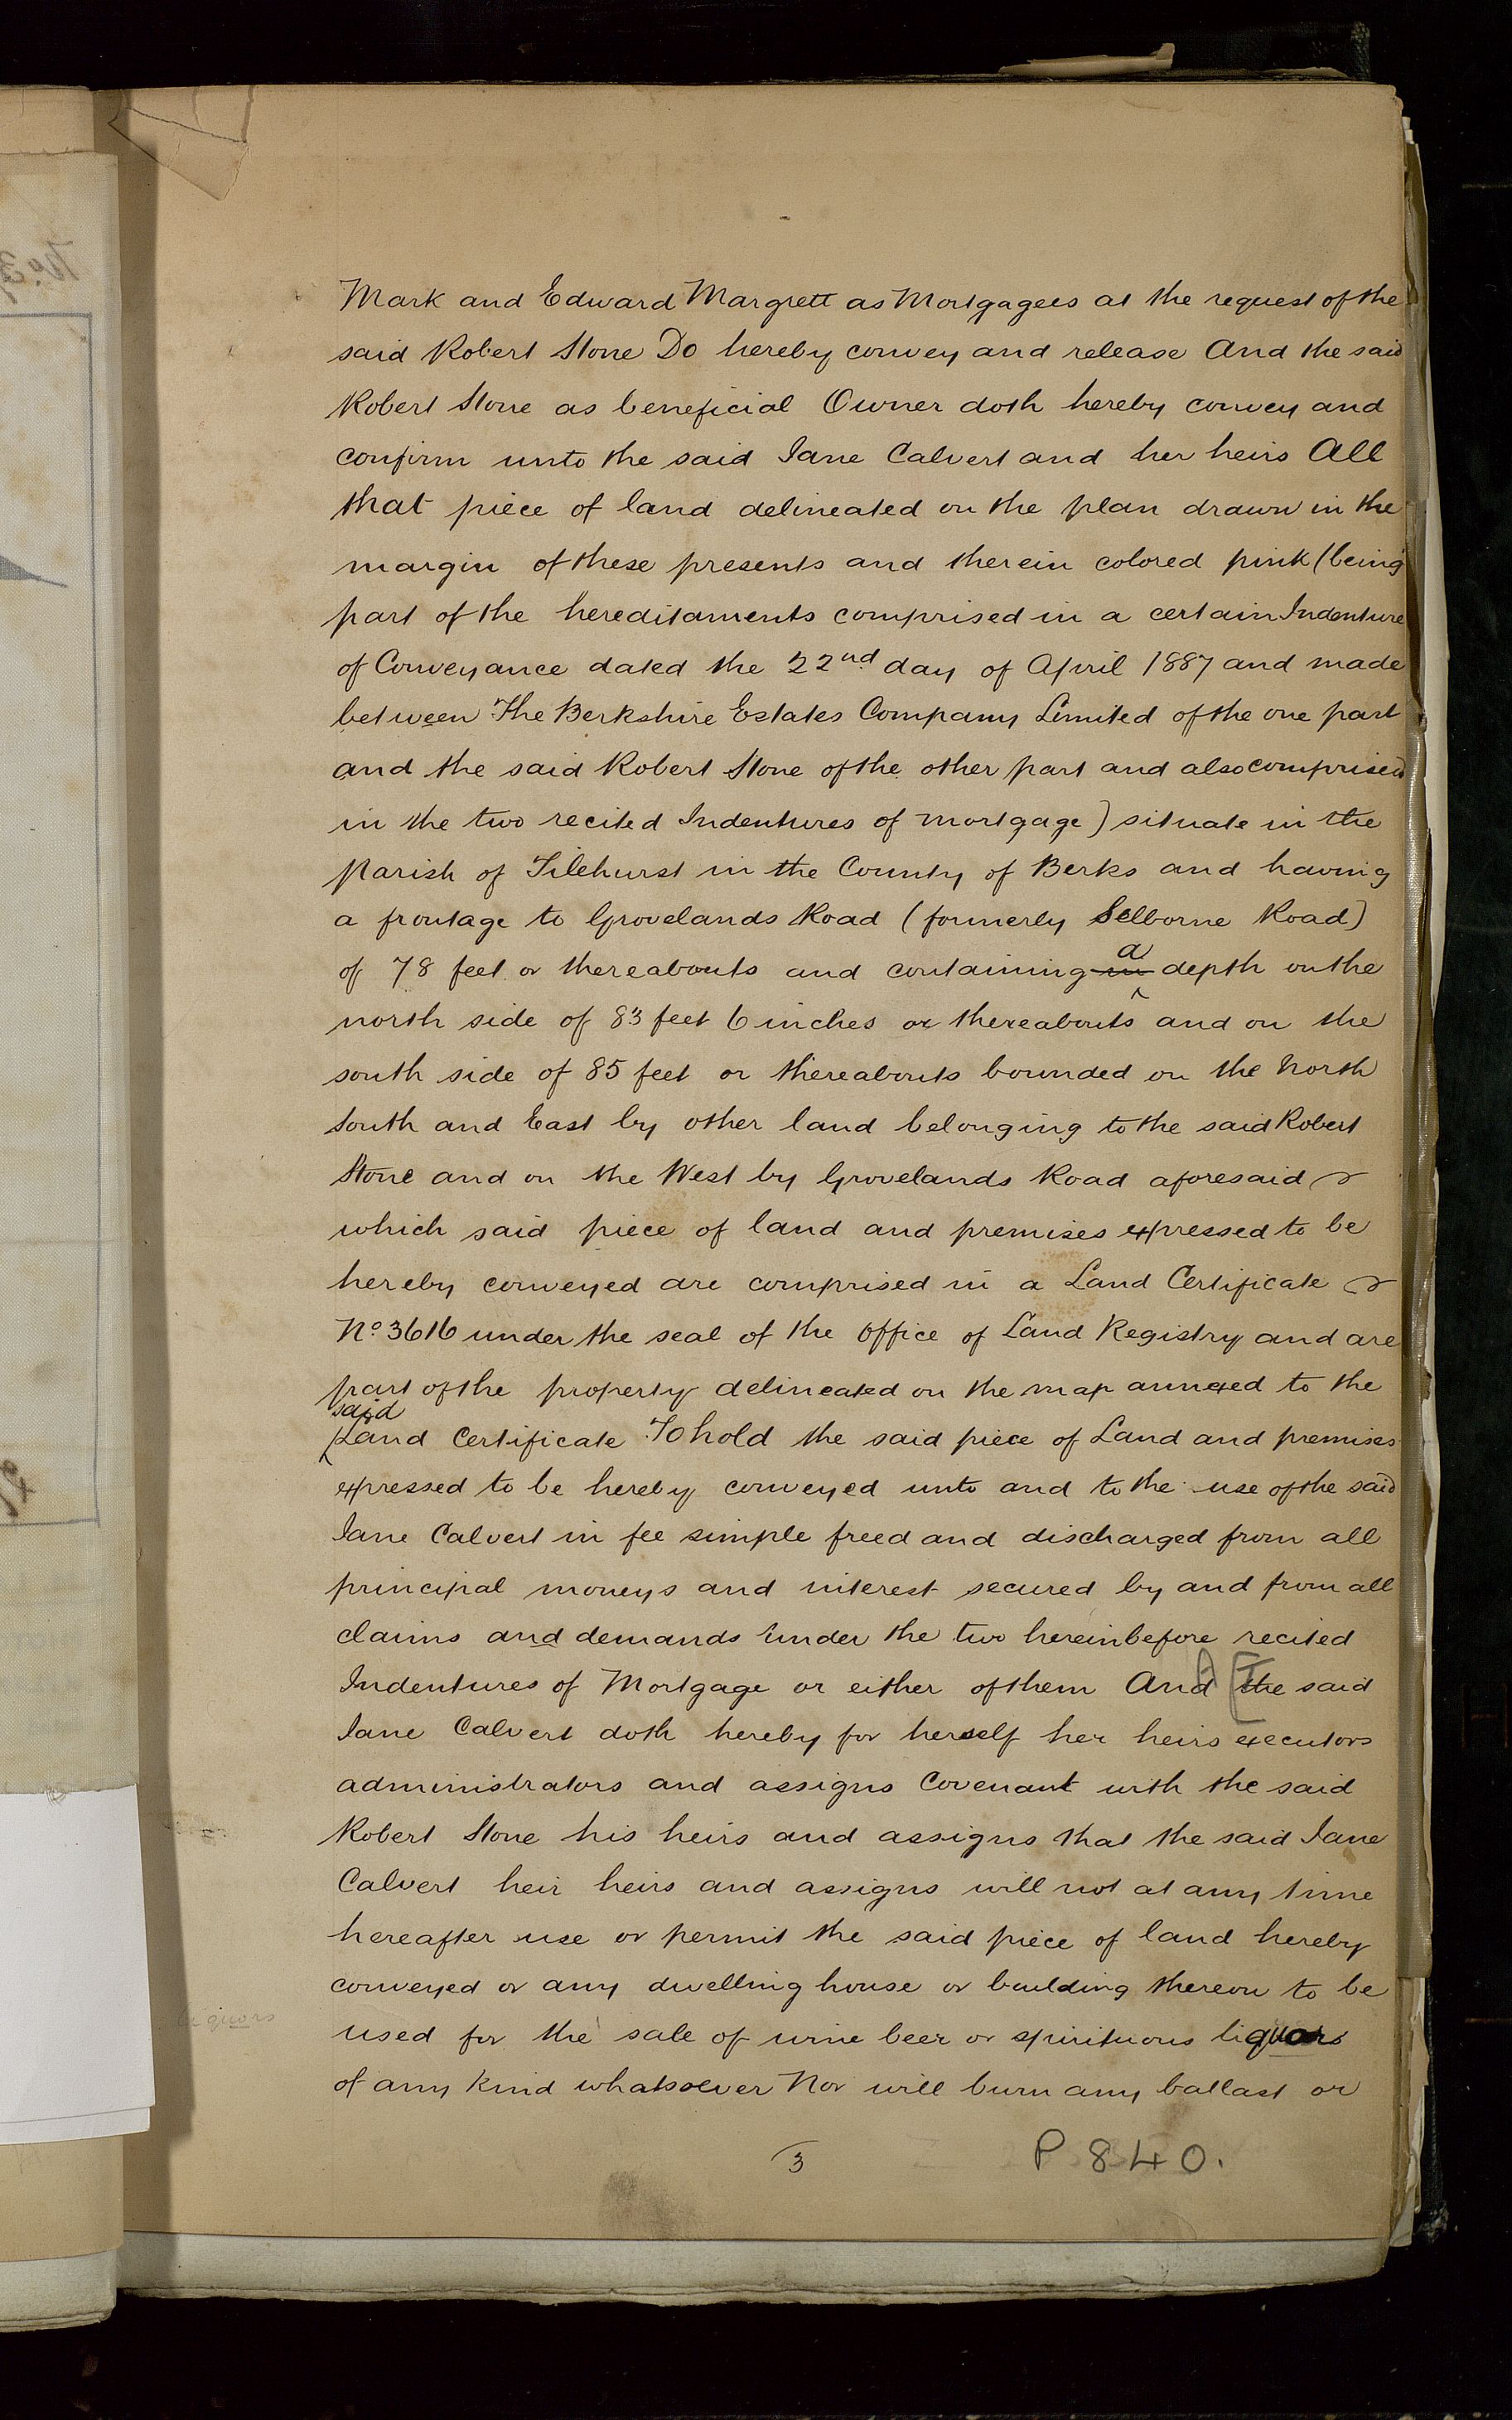 Mark and Edward Margrett as Mortgagees at the request of the
said Robert Stone Do hereby convey and release And the said
Robert Stone as beneficial Owner doth hereby convey and
confirm unto the said Jane Calvert and her heirs All
that piece of land delineated on the plan drawn in the
margin of these presents and therein colored pink (being
part of the hereditaments comprised in a certain Indenture
of Conveyance dated the 22nd day of April 1887 and made
between The Berkshire Estates Company Limited of the one part
and the said Robert Stone of the other part and also comprised
in the two recited Indentures of mortgage) situate in the
Parish of Tilehurst in the County of Berks and having
a frontage to Grovelands Road (formerly Selborne Road)
of 78 feet or thereabouts and containing in a depth on the
north side of 83 feet 6 inches or thereabouts and on the
south side of 85 feet or thereabouts bounded on the North
South and East by other land belonging to the said Robert
Stone and on the West by Grovelands Road aforesaid
which said piece of land and premises expressed to be
hereby conveyed are comprised in a Land Certificate
No 3616 under the seal of the office of Land Registry and are
part of the property delineated on the map annexed to the
said
Land Certificate To hold the said piece of Land and premises
expressed to be hereby conveyed unto and to the use of the said
Jane Calvert in fee simple freed and discharged from all
principal moneys and interest secured by and from all
claims and demands under the two hereinbefore recited
Indentures of Mortgage or either of them And [the said
Jane Calvert doth hereby for herself her heirs executors
administrators and assigns Covenant with the said
Robert Stone his heirs and assigns that the said Jane
Calvert heir heirs and assigns will not at any time
hereafter use or permit the said piece of land hereby
conveyed or any dwelling house or building thereon to be
used for the sale of wine beer or spirituous liquors
of any kind whatsoever Nor will burn any ballast or
3
P 840.
liquors